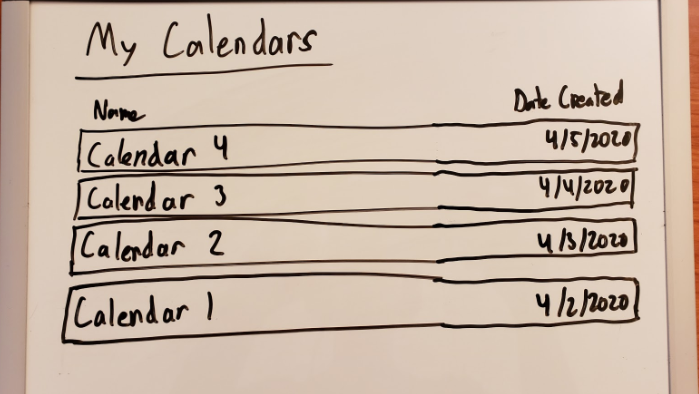 My Calendars
Name Date Created
Calendar 4 4/5/2020
Calendar 3 4/4/2020
Calendar 2 4/3/2020
Calendar 1 4/2/2020